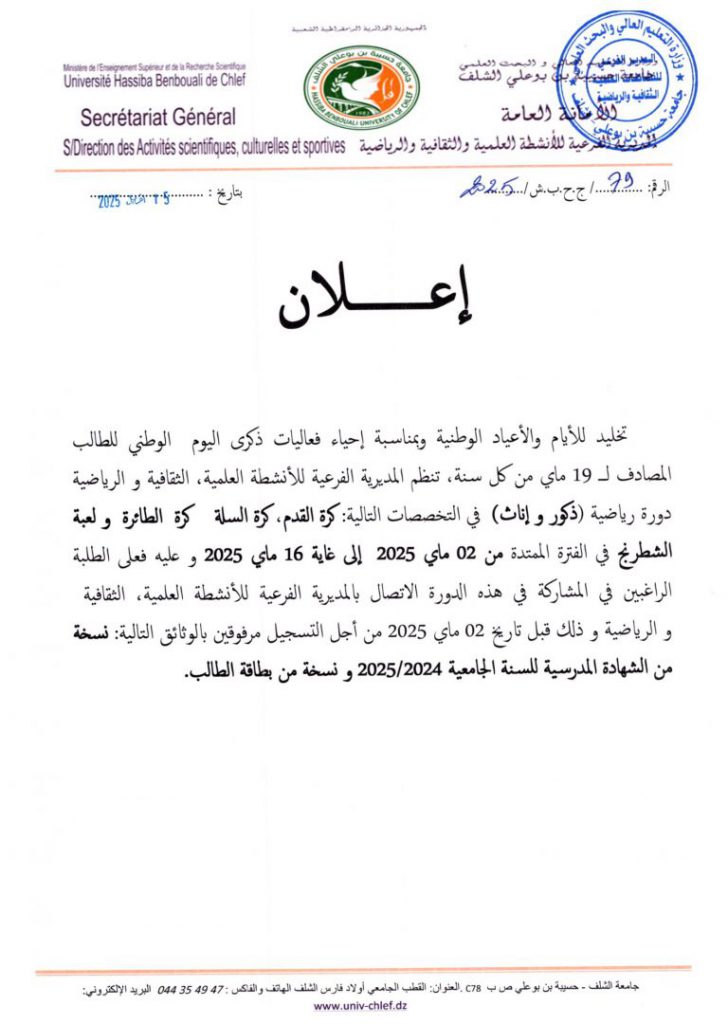 الجمهورية الجزائرية الديمقراطية الشعبية
Ministère de l'Enseignement Supérieur et de la Recherche Scientifique
Université Hassiba Benbouali de Chlef
Secrétariat Général
S/Direction des Activités scientifiques, culturelles et sportives
جامعة حسيبة بن بوعلي الشلف
HASSIBA BENBOUALI UNIVERSITY OF CHLEF
العالي و البحث العلمي
جامعة حسيبة بن بوعلي الشلف
الأمانة العامة
المديرية الفرعية للأنشطة العلمية والثقافية والرياضية
وزارة التعليم العالي والبحث العلمي
جامعة حسيبة بن بوعلي
المدير الفرعي
للأنشطة العلمية
الثقافية والرياضية
الرقم: ...79.../ج.ح.ب.ش/...2025
بتاريخ : 15 أفريل 2025
إعـــــلان
تخليد للأيام والأعياد الوطنية وبمناسبة إحياء فعاليات ذكرى اليوم الوطني للطالب
المصادف لـ 19 ماي من كل سنة، تنظم المديرية الفرعية للأنشطة العلمية، الثقافية و الرياضية
دورة رياضية (ذكور و إناث) في التخصصات التالية: كرة القدم، كرة السلة كرة الطائرة و لعبة
الشطرنج في الفترة الممتدة من 02 ماي 2025 إلى غاية 16 ماي 2025 و عليه فعلى الطلبة
الراغبين في المشاركة في هذه الدورة الاتصال بالمديرية الفرعية للأنشطة العلمية، الثقافية
و الرياضية و ذلك قبل تاريخ 02 ماي 2025 من أجل التسجيل مرفوقين بالوثائق التالية: نسخة
من الشهادة المدرسية للسنة الجامعية 2025/2024 و نسخة من بطاقة الطالب.
جامعة الشلف - حسيبة بن بوعلي ص ب C78 .العنوان: القطب الجامعي أولاد فارس الشلف الهاتف والفاكس : 044 35 49 47 البريد الإلكتروني:
www.univ-chlef.dz